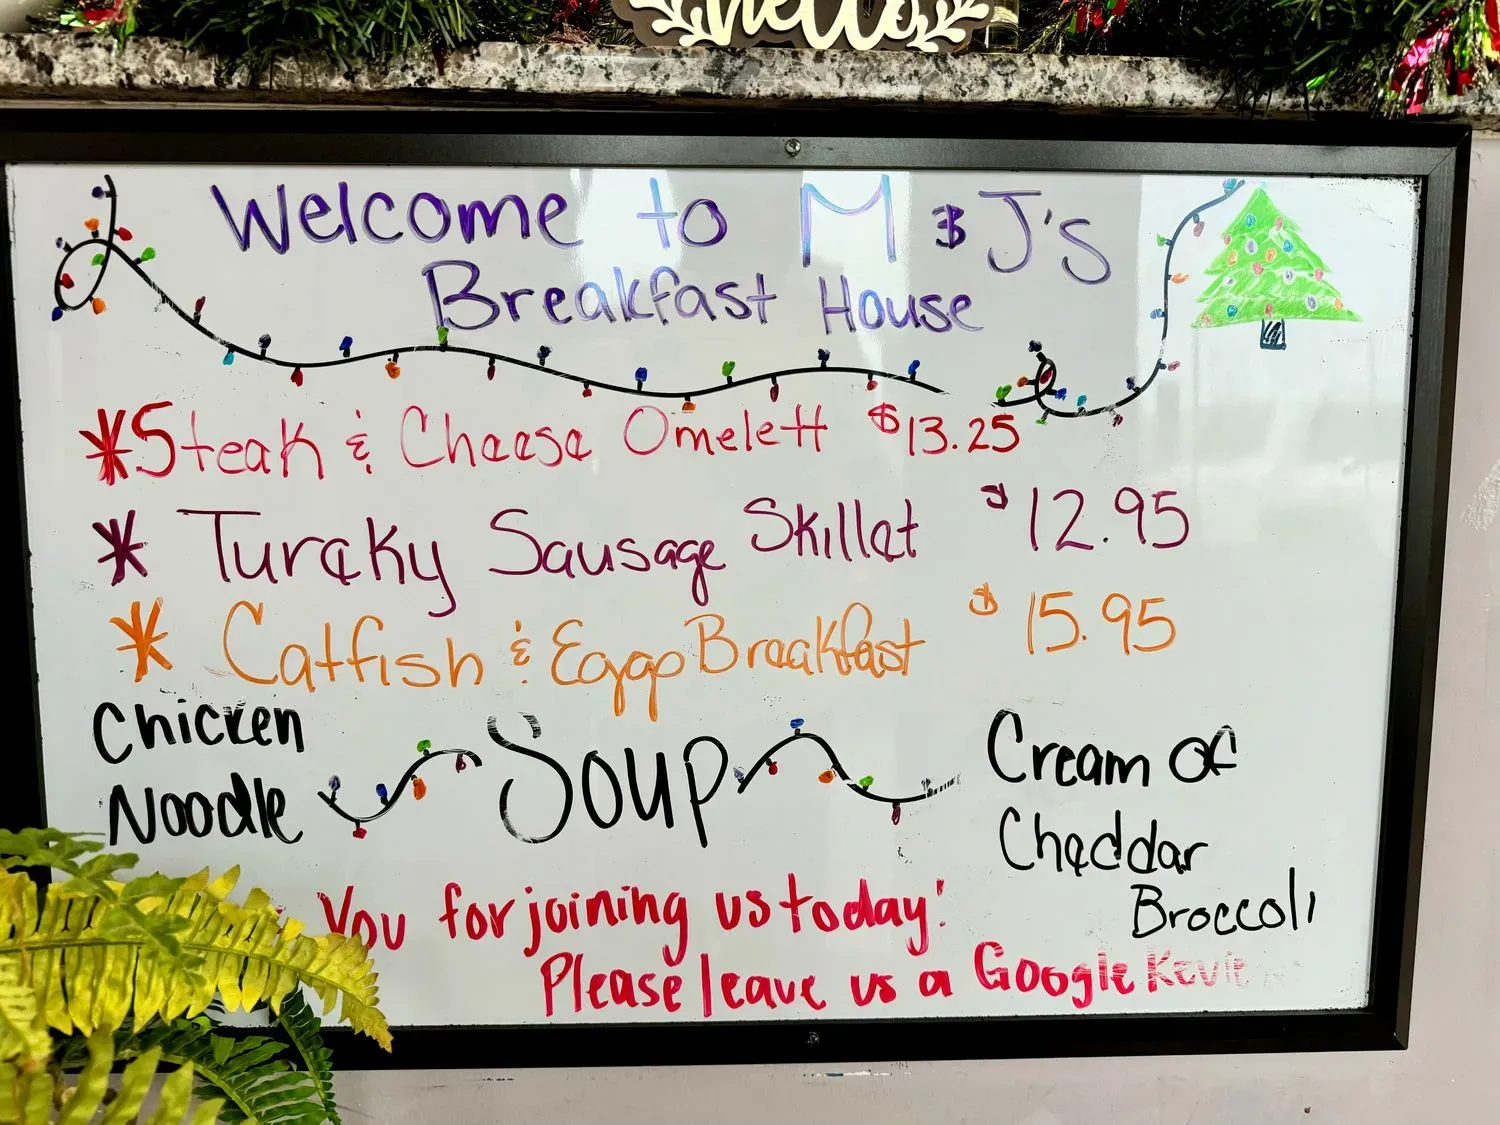 hello
Welcome to M & J's
Breakfast House
*Steak & Cheese Omelett $13.25
* Turkey Sausage Skillet $12.95
* Catfish & Eggs Breakfast $15.95
Chicken
Noodle
Soup
Cream of
Cheddar
Broccoli
You for joining us today!
Please leave us a Google Review